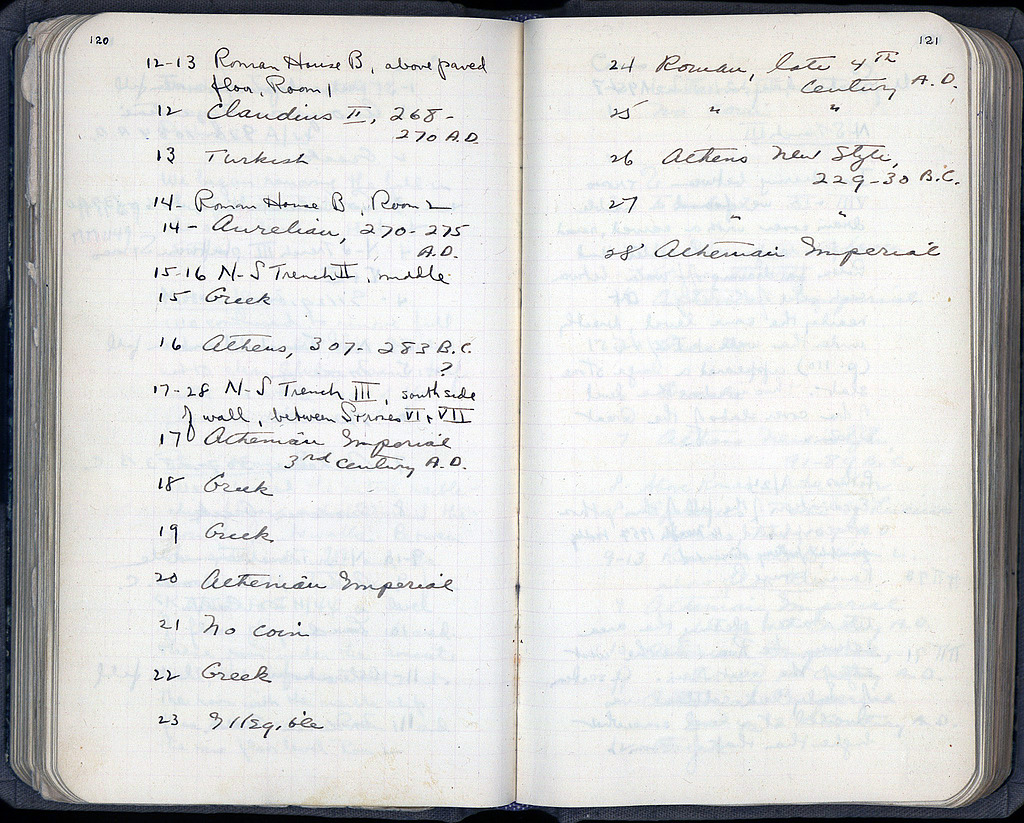 120
12-13 Roman House B, above paved
floor, Room 1
12 Claudius II, 268-
270 A.D.
13 Turkish
14- Roman House B, Room 2
14- Aurelian, 270-275
A.D.
15-16 N-S Trench II, middle
15 Greek
16 Athens, 307-283 B.C.
?
17-28 N-S Trench III, south side
of wall, between Srnes VI + VII
17 Athenian Imperial
3rd century A.D.
18 Greek
19 Greek
20 Athenian Imperial
21 No coin
22 Greek
23 Illegible
121
24 Roman, late 4TH
Century A.D.
25 " "
26 Athens New Style,
229-30 B.C.
27 " "
28 Athenian Imperial